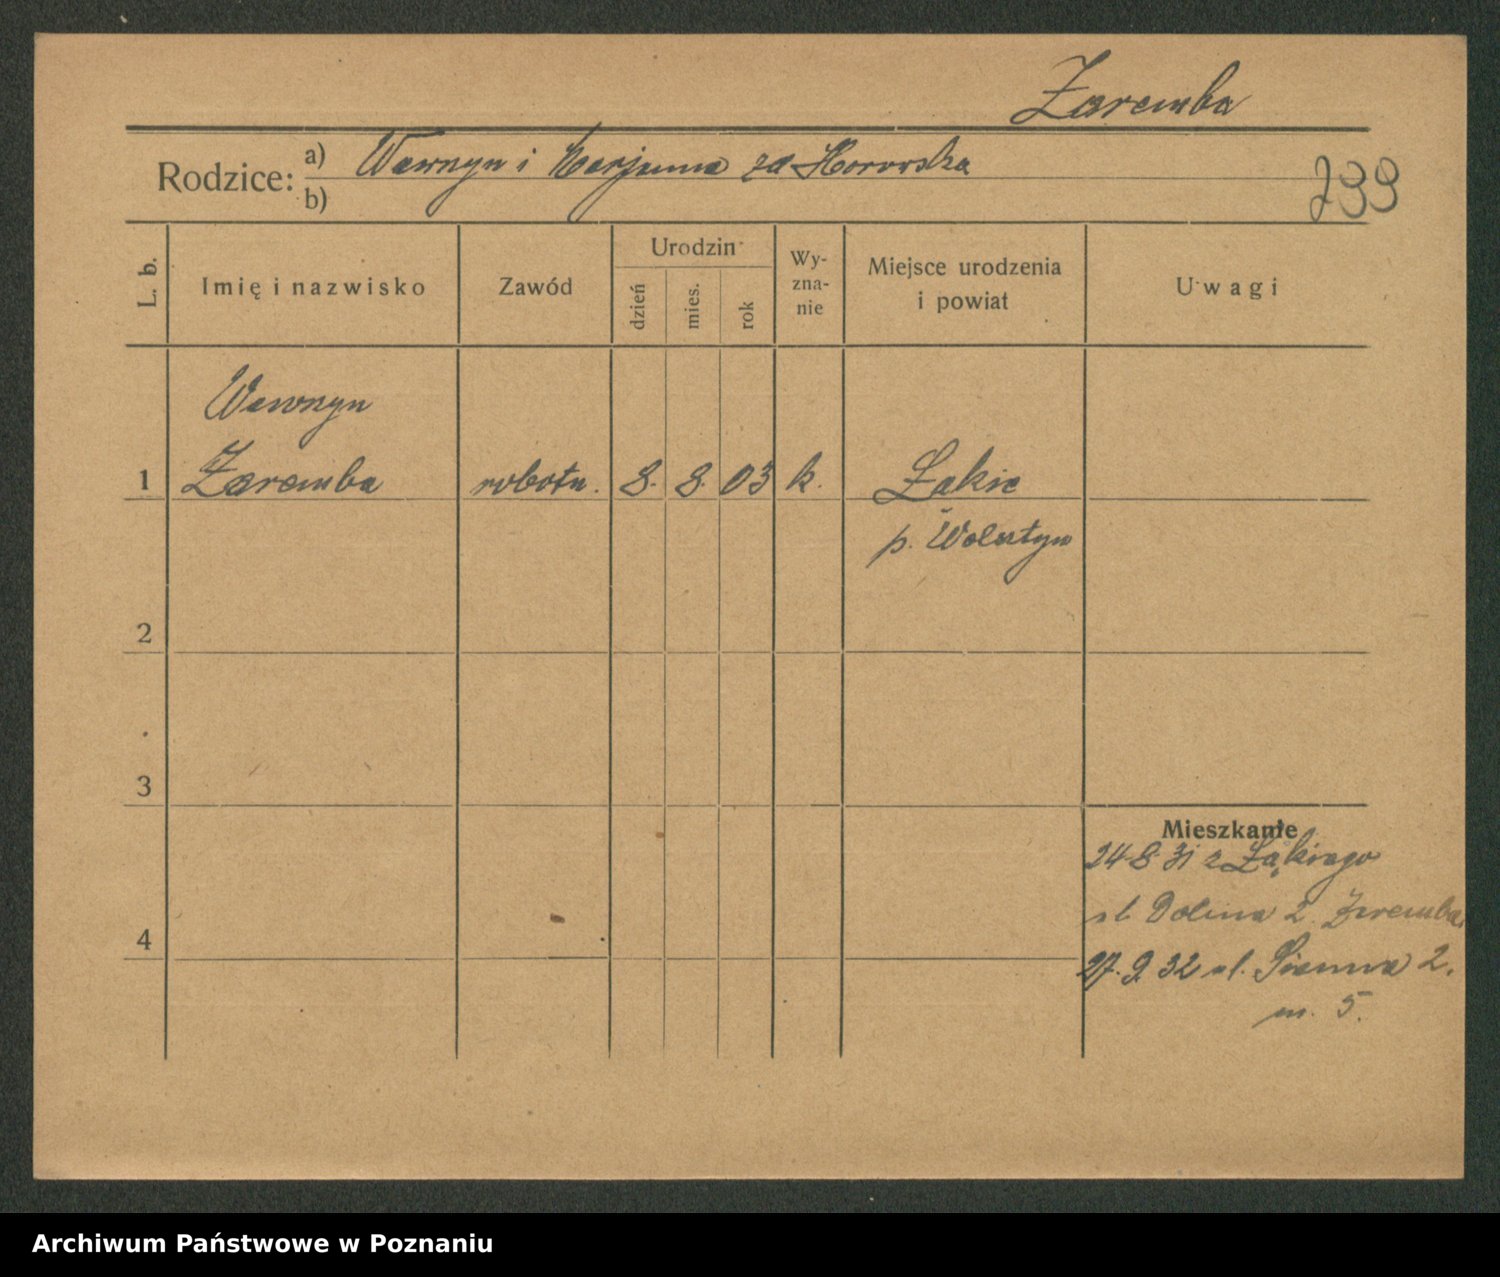 Zaremba
Rodzice: a) Wawrzyn i Marjanna zd Horowska
b)
299
L. b. Imię i nazwisko Zawód Urodzin dzień mies. rok Wy-zna-nie Miejsce urodzenia i powiat Uwagi
Wawrzyn
1 Zaremba robotn. 8. 8. 03 k. Łąkie
p. Wolsztyn
2
3
Mieszkanie
24 8 31 z Łąkiego
ul Dolina 2. Zaremba
4
27. 9. 32 ul. Sienna 2.
m. 5.
Archiwum Państwowe w Poznaniu